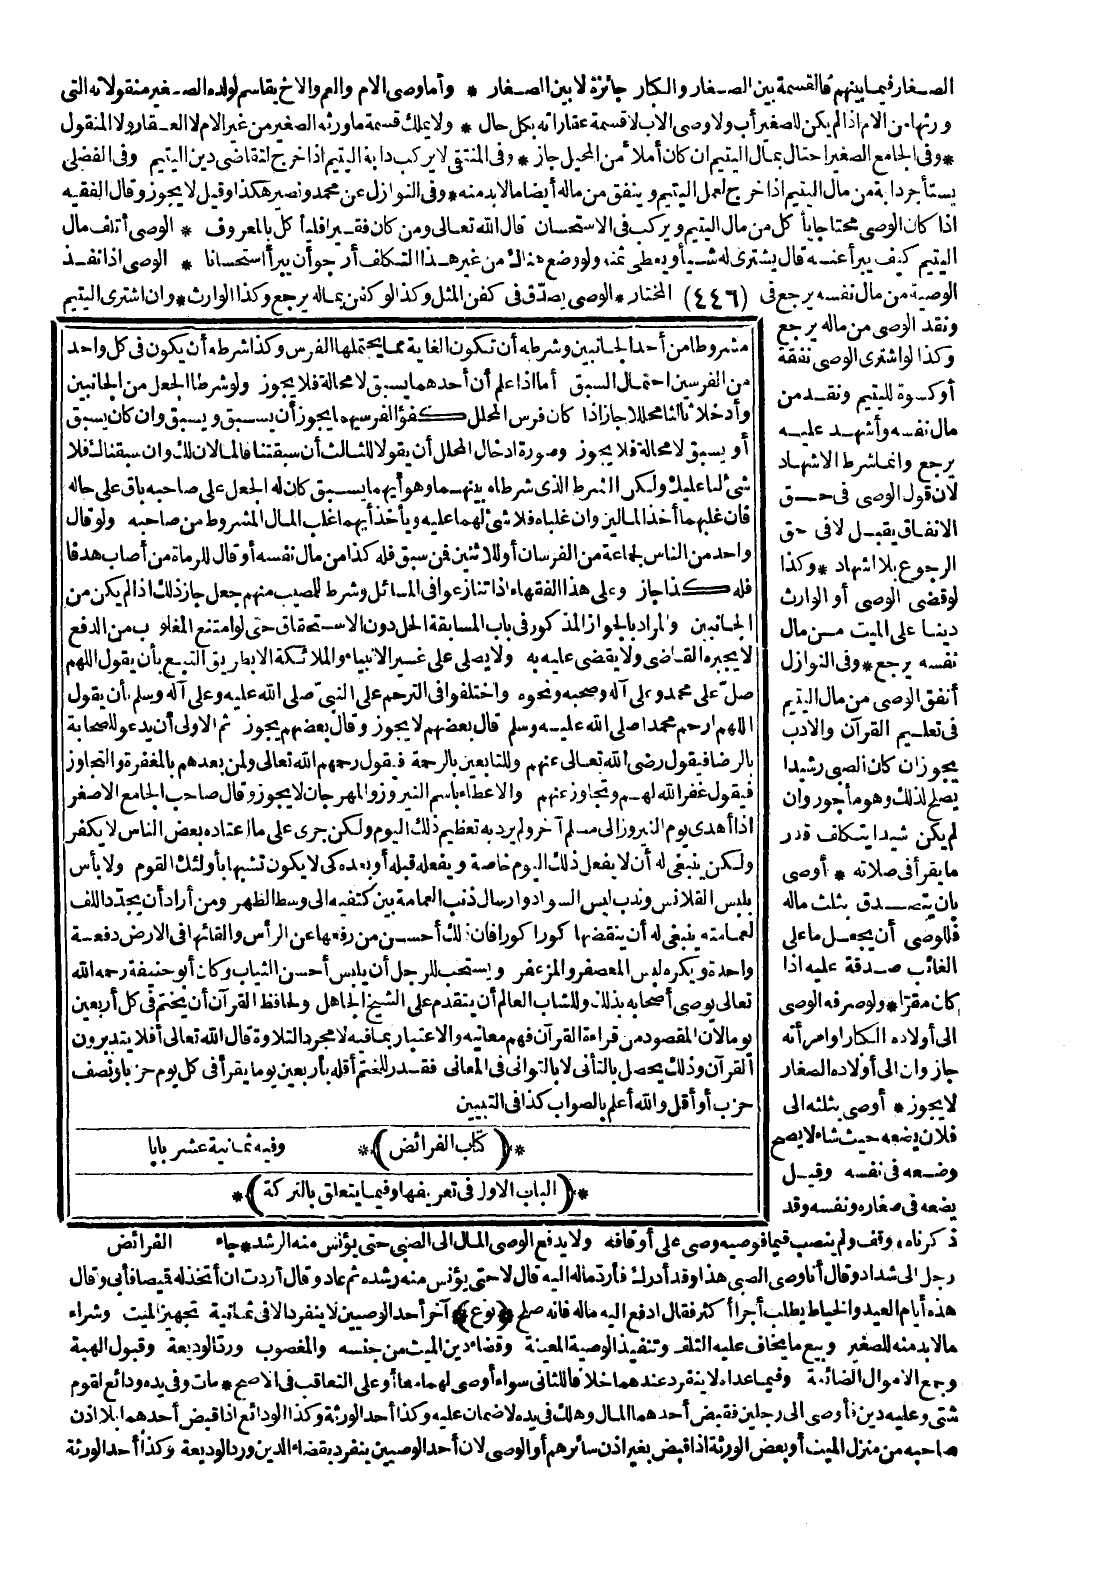 الصغار فيما بينهم فالقسمة بين الصغار والكبار جائزة لا بين الصغار * وأما وصى الام والعم والاخ يقاسم لولده الصغير منقولاته التى
ورثها من الام اذا لم يكن للصغير أب ولا وصى الاب لا قسمة عقاراته بكل حال * ولا يملك قسمة ما ورثه الصغير من غير الام لا العقار ولا المنقول
* وفى الجامع الصغير احتال بمال اليتيم ان كان أملأ من المحيل جاز * وفى المنتقى لا يركب دابة اليتيم اذا خرج لتقاضى دين اليتيم وفى الفضلى
يستأجر دابة من مال اليتيم اذا خرج لعمل اليتيم وينفق من ماله أيضا ما لا بد منه * وفى النوازل عن محمد ونصير هكذا وقيل لا يجوز وقال الفقيه
اذا كان الوصى محتاجا يأكل من مال اليتيم ويركب فى الاستحسان قال الله تعالى ومن كان فقيرا فليأكل بالمعروف * الوصى أتلف مال
اليتيم كيف يبرأ عنه قال يشترى له شيأ ويعطى ثمنه ولو وضع هنالك من غير هذا التكلف أرجو أن يبرأ استحسانا * الوصى اذا نفذ
الوصية من مال نفسه يرجع فى (٤٤٦) المختار * الوصى يصدّق فى كفن المثل وكذا لو كفن بماله يرجع وكذا الوارث * وان اشترى اليتيم
ونقد الوصى من ماله يرجع
وكذا لو اشترى الوصى نفقة
أو كسوة لليتيم ونقد من
مال نفسه وأشهد عليه
يرجع وانما شرط الاشهاد
لان قول الوصى فى حق
الانفاق يقبل لا فى حق
الرجوع بلا اشهاد * وكذا
لو قضى الوصى أو الوارث
دينا على الميت من مال
نفسه يرجع * وفى النوازل
أنفق الوصى من مال اليتيم
فى تعليم القرآن والادب
يجوز ان كان الصبى رشيدا
يصلح لذلك وهو مأجور وان
لم يكن رشيدا يتكلف قدر
ما يقرأ فى صلاته * أوصى
بان يتصدق بثلث ماله
فللوصى أن يجعل ما على
الغائب صدقة عليه اذا
كان مقرّا * ولو صرفه الوصى
الى أولاده الكبار أو امرأته
جاز وان الى أولاده الصغار
لا يجوز * أوصى بثلثه الى
فلان يضعه حيث شاء لا يصح
وضعه فى نفسه وقيل
يضعه فى صغاره ونفسه وقد
مشروطا من أحد الجانبين وشرطه أن تكون الغاية مما يحتملها الفرس وكذا شرطه أن يكون فى كل واحد
من الفرسين احتمال السبق أما اذا علم أن أحدهما يسبق لا محالة فلا يجوز ولو شرطا الجعل من الجانبين
وأدخلا ثالثا محللا جاز اذا كان فرس المحلل كفؤا لفرسيهما يجوز أن يسبق ويسبق وان كان يسبق
أو يسبق لا محالة فلا يجوز وصورة ادخال المحلل أن يقولا للثالث أن سبقتنا فالمالان لك وان سبقناك فلا
شئ لنا عليك ولكن الشرط الذى شرطاه بينهما وهو أيهما يسبق كان له الجعل على صاحبه باق على حاله
فان غلبهما أخذ المالين وان غلباه فلا شئ لهما عليه ويأخذ أيهما غلب المال المشروط من صاحبه ولو قال
واحد من الناس لجماعة من الفرسان أو للاثنين فمن سبق فله كذا من مال نفسه أو قال للرماة من أصاب هدفا
فله كذا جاز وعلى هذا الفقهاء اذا تنازعوا فى المسائل وشرط للمصيب منهم جعل جاز ذلك اذا لم يكن من
الجانبين والمراد بالجواز المذكور فى باب المسابقة الحل دون الاستحقاق حتى لو امتنع المغلوب من الدفع
لا يجبره القاضى ولا يقضى عليه به ولا يصلى على غير الانبياء والملائكة الا بطريق التبع بأن يقول اللهم
صلّ على محمد وعلى آله وصحبه ونحوه واختلفوا فى الترحم على النبىّ صلى الله عليه وعلى آله وسلم بأن يقول
اللهم ارحم محمدا صلى الله عليه وسلم قال بعضهم لا يجوز وقال بعضهم يجوز ثم الاولى أن يدعو للصحابة
بالرضا فيقول رضى الله تعالى عنهم وللتابعين بالرحمة فيقول رحمهم الله تعالى ولمن بعدهم بالمغفرة والتجاوز
فيقول غفر الله لهم وتجاوز عنهم والاعطاء باسم النيروز والمهرجان لا يجوز وقال صاحب الجامع الاصغر
اذا أهدى يوم النيروز الى مسلم آخر ولم يرد به تعظيم ذلك اليوم ولكن جرى على ما اعتاده بعض الناس لا يكفر
ولكن ينبغى له أن لا يفعل ذلك اليوم خاصة ويفعله قبله أو بعده كى لا يكون تشبها بأولئك القوم ولا بأس
بلبس القلانس وندب لبس السواد وارسال ذنب العمامة بين كتفيه الى وسط الظهر ومن أراد أن يجدّد اللف
لعمامته ينبغى له أن ينقضها كورا كورا فان ذلك أحسن من رفعها عن الرأس والقائها فى الارض دفعة
واحدة ويكره لبس المعصفر والمزعفر ويستحب للرجل أن يلبس أحسن الثياب وكان أبو حنيفة رحمه الله
تعالى يوصى أصحابه بذلك وللشاب العالم أن يتقدم على الشيخ الجاهل ولحافظ القرآن أن يختم فى كل أربعين
يوما لان المقصود من قراءة القرآن فهم معانيه والاعتبار بما فيه لا مجرد التلاوة قال الله تعالى أفلا يتدبرون
القرآن وذلك يحصل بالتأنى لا بالتوانى فى المعانى فقدر للختم أقله بأربعين يوما يقرأ فى كل يوم حزبا ونصف
حزب أو أقل والله أعلم بالصواب كذا فى التبيين
* (كتاب الفرائض) * وفيه ثمانية عشر بابا
* (الباب الاول فى تعريفها وفيما يتعلق بالتركة) *
ذكرناه وقف ولم ينصب قيما فوصيه وصى على أوقافه ولا يدفع الوصى المال الى الصبى حتى يؤنس منه الرشد * جاء الفرائض
رجل الى شداد وقال أنا وصى الصبى هذا وقد أدرك فأردّ ماله اليه قال لا حتى يؤنس منه رشده ثم عاد وقال أردت ان أتخذ له قميصا فأبى وقال
هذه أيام العيد والخياط يطلب أجرا أكثر فقال ادفع اليه ماله فانه صلح ﴿نوع﴾ آخر أحد الوصيين لا ينفرد الا فى ثمانية تجهيز الميت وشراء
ما لا بد منه للصغير وبيع ما يخاف عليه التلف وتنفيذ الوصية المعينة وقضاء دين الميت من جنسه والمغصوب وردّ الوديعة وقبول الهبة
وجمع الاموال الضائعة وفيما عداه لا ينفرد عندهما خلافا للثانى سواء أوصى لهما معا أو على التعاقب فى الاصح * مات وفى يده ودائع لقوم
شتى وعليه دين وأوصى الى رجلين فقبض أحدهما المال وهلك فى يده لا ضمان عليه وكذا أحد الورثة وكذا الودائع اذا قبض أحدهما بلا اذن
صاحبه من منزل الميت أو بعض الورثة اذا قبض بغير اذن سائرهم أو الوصى لان أحد الوصيين ينفرد بقضاء الدين ورد الوديعة وكذا أحد الورثة